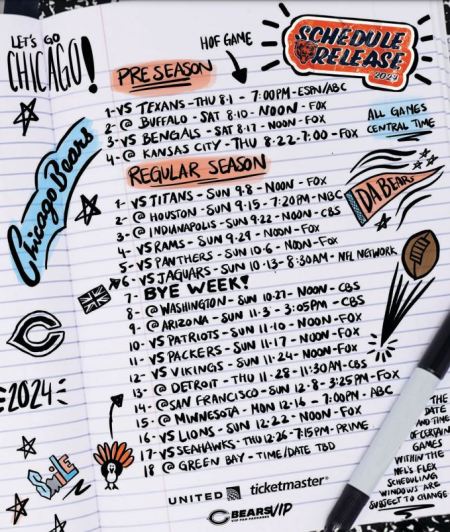 LET'S GO
CHICAGO!
HOF GAME
SCHEDULE
RELEASE
2024
PRESEASON
1- VS TEXANS - THU 8·1 - 7:00PM - ESPN/ABC
2- @ BUFFALO - SAT 8·10 - NOON - FOX
3- VS BENGALS - SAT 8·17 - NOON - FOX
4- @ KANSAS CITY - THU 8·22 - 7:00 - FOX
ALL GAMES
CENTRAL TIME
Chicago Bears
REGULAR SEASON
DA BEARS
1- VS TITANS - SUN 9·8 - NOON - FOX
2- @ HOUSTON - SUN 9·15 - 7:20PM - NBC
3- @ INDIANAPOLIS - SUN 9·22 - NOON - CBS
4- VS RAMS - SUN 9·29 - NOON - FOX
5- VS PANTHERS - SUN 10·6 - NOON - FOX
6- VS JAGUARS - SUN 10·13 - 8:30AM - NFL NETWORK
7- BYE WEEK!
8- @ WASHINGTON - SUN 10·27 - NOON - CBS
9- @ ARIZONA - SUN 11·3 - 3:05PM - CBS
10- VS PATRIOTS - SUN 11·10 - NOON - FOX
11- VS PACKERS - SUN 11·17 - NOON - FOX
12- VS VIKINGS - SUN 11·24 - NOON - FOX
13- @ DETROIT - THU 11·28 - 11:30AM - CBS
14- @ SAN FRANCISCO - SUN 12·8 - 3:25PM - FOX
15- @ MINNESOTA - MON 12·16 - 7:00PM - ABC
16- VS LIONS - SUN 12·22 - NOON - FOX
17- VS SEAHAWKS - THU 12·26 - 7:15PM - PRIME
18 @ GREEN BAY - TIME/DATE TBD
C
2024
SMILE
THE
DATE
AND TIME
OF CERTAIN
GAMES
WITHIN THE
NFL'S FLEX
SCHEDULING
WINDOWS ARE
SUBJECT TO CHANGE
UNITED
ticketmaster
BEARS VIP